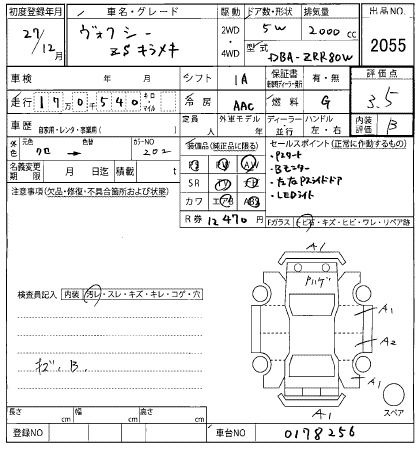 初度登録年月 車名・グレード 駆動 ドア数・形状 排気量 出品NO.
27/12月 ヴォクシー ZS キラメキ 2WD・4WD 5W 2000cc 2055
型式 DBA-ZRR80W
車検 年 月 シフト IA 保証書 有・無 評価点 3.5
走行 17万0千540 キロ・マイル 冷房 AAC 燃料 G
車歴 自家用・レンタ・事業用( ) 定員 人 外車モデル 年 ディーラー・並行 ハンドル 左・右 内装評価 B
外色 元色 クロ 色替 カラーNO 202
名義変更期限 月 日迄 積載 t
装備品(純正品に限る)
SR
カワ エアB ABS
R券 12470円
セールスポイント(正常に作動するもの)
・Pスタート
・Bモニター
・LEDライト
注意事項(欠品・修復・不具合箇所および状態)
Fガラス トビ石・キズ・ヒビ・ワレ・リペア跡
検査員記入 内装 汚レ・スレ・キズ・キレ・コゲ・穴
キズ、B.
A1
Pハゲ
A1
A2
A1
A1
スペア
長さ cm 幅 cm 高さ cm
登録NO 車台NO 0178256